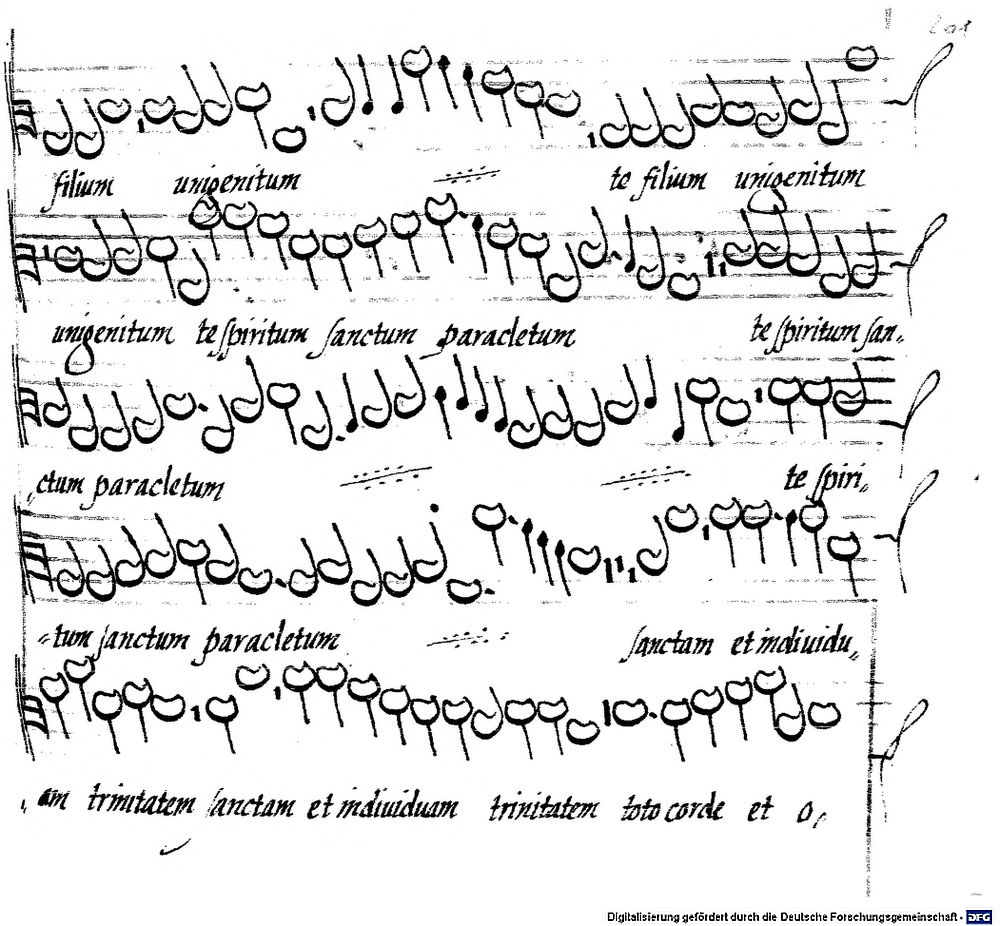 201
filium unigenitum te filium unigenitum
unigenitum te spiritum sanctum paracletum te spiritum san„
„ctum paracletum te spiri„
„tum sanctum paracletum sanctam et indiuidu„
„am trinitatem sanctam et indiuiduam trinitatem toto corde et o„
Digitalisierung gefördert durch die Deutsche Forschungsgemeinschaft - DFG